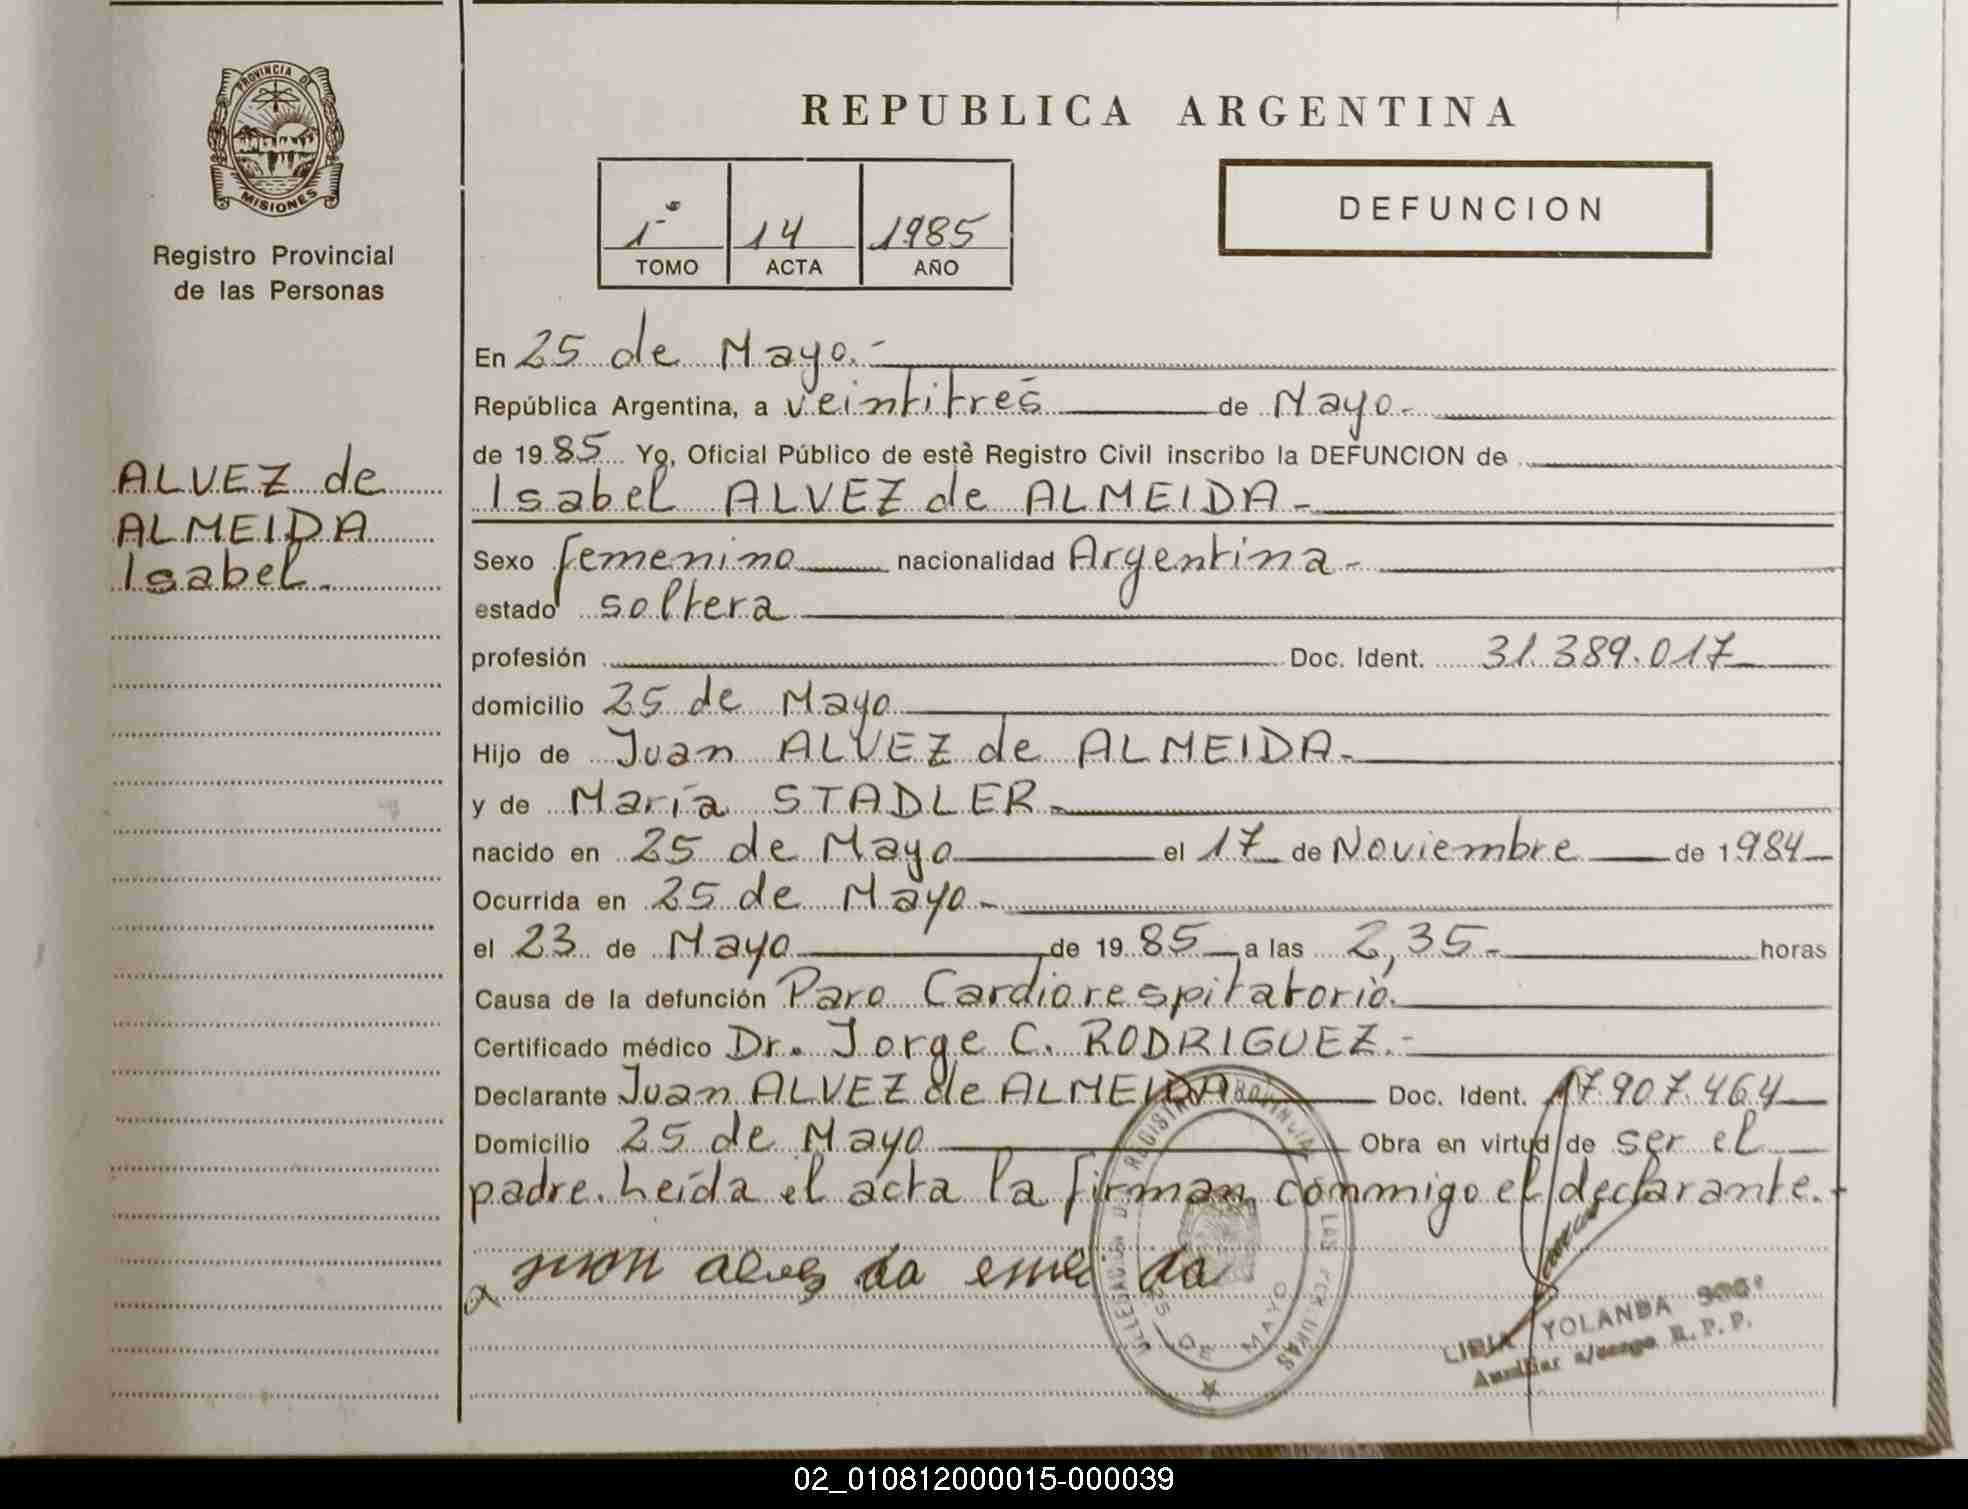 PROVINCIA DE
MISIONES
Registro Provincial
de las Personas
ALVEZ de
ALMEIDA
Isabel.
REPUBLICA ARGENTINA
1º 14 1985
TOMO ACTA AÑO
DEFUNCION
En 25 de Mayo.-
República Argentina, a veintitrés de Mayo-
de 1985 Yo, Oficial Público de este Registro Civil inscribo la DEFUNCION de
Isabel ALVEZ de ALMEIDA-
Sexo femenino nacionalidad Argentina-
estado soltera
profesión Doc. Ident. 31.389.017
domicilio 25 de Mayo
Hijo de Juan ALVEZ de ALMEIDA-
y de María STADLER-
nacido en 25 de Mayo el 17 de Noviembre de 1984
Ocurrida en 25 de Mayo-
el 23 de Mayo de 1985 a las 2,35- horas
Causa de la defunción Paro Cardiorespitatorio.
Certificado médico Dr. Jorge C. RODRIGUEZ.-
Declarante Juan ALVEZ de ALMEIDA Doc. Ident. 17.907.464
Domicilio 25 de Mayo Obra en virtud de ser el
padre. Leída el acta la firman conmigo el declarante.-
REGISTRO PROVINCIAL DE LAS PERSONAS
25 DE MAYO
YOLANDA
Auxiliar a/cargo R.P.P.
02_010812000015-000039